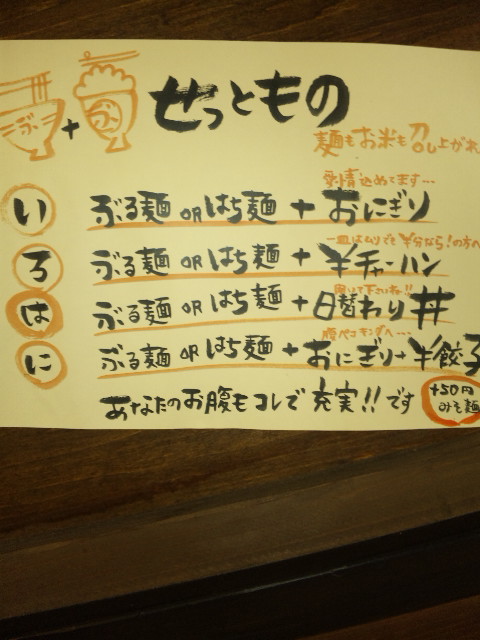 ぶ + ぶ せっともの
麺もお米も召し上がれ
愛情込めてます…
い ぶる麺 OR はち麺 + おにぎり
一皿はムリでも半分なら!の方へ
ろ ぶる麺 OR はち麺 + 半チャーハン
聞いて下さいね!!
は ぶる麺 OR はち麺 + 日替わり丼
腹ペコキングへ…
に ぶる麺 OR はち麺 + おにぎり+半餃子
あなたのお腹もコレで充実!!です
+50円
みそ麺